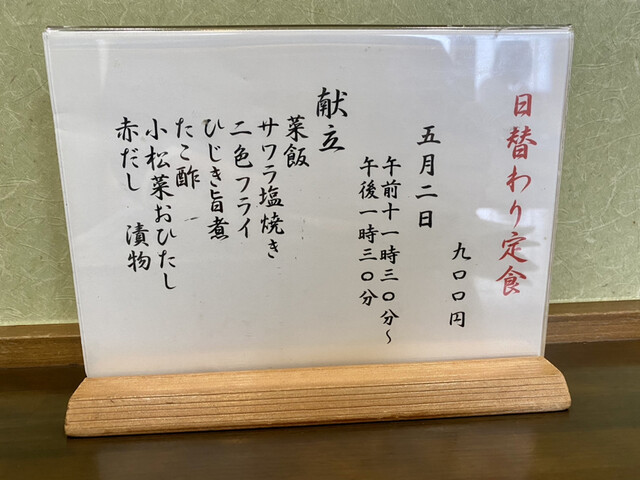 日替わり定食
九〇〇円
五月二日
午前十一時三〇分〜
午後一時三〇分
献立
菜飯
サワラ塩焼き
二色フライ
ひじき旨煮
たこ酢
小松菜おひたし
赤だし 漬物